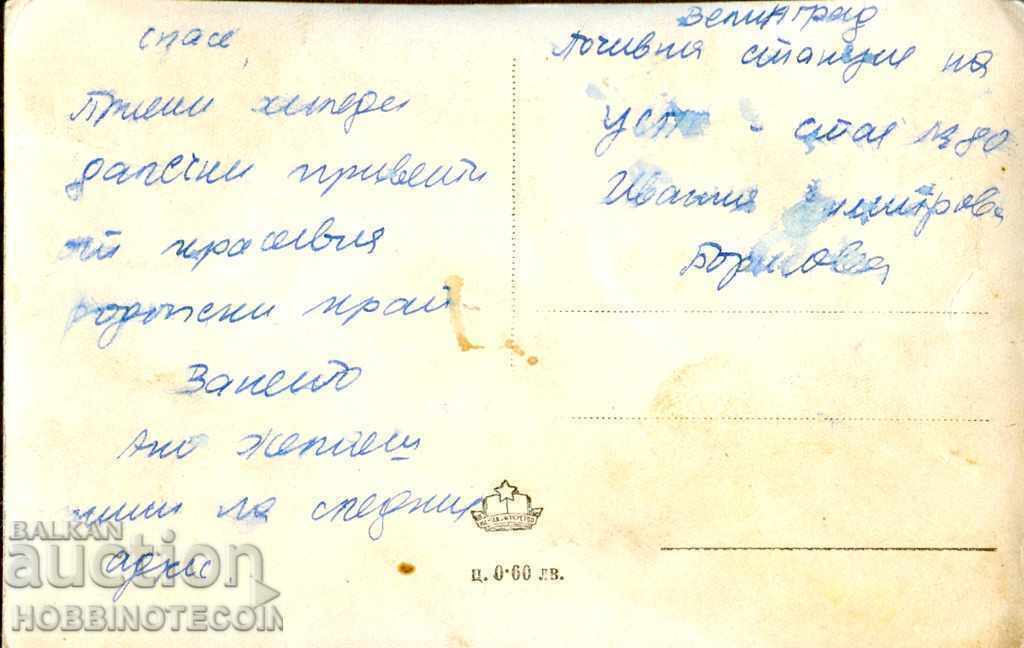 спасе
Приеми хиляди
далечни привети
от красивия
родопски край
Ването
Ако желаеш
пиши на следния
адрес
Велинград
Почивна станция на
УСТ - стая № 80
Иванка Димитрова
Борисова
ц. 0·60 лв.
BALKAN
auction
HOBBINOTECOIN